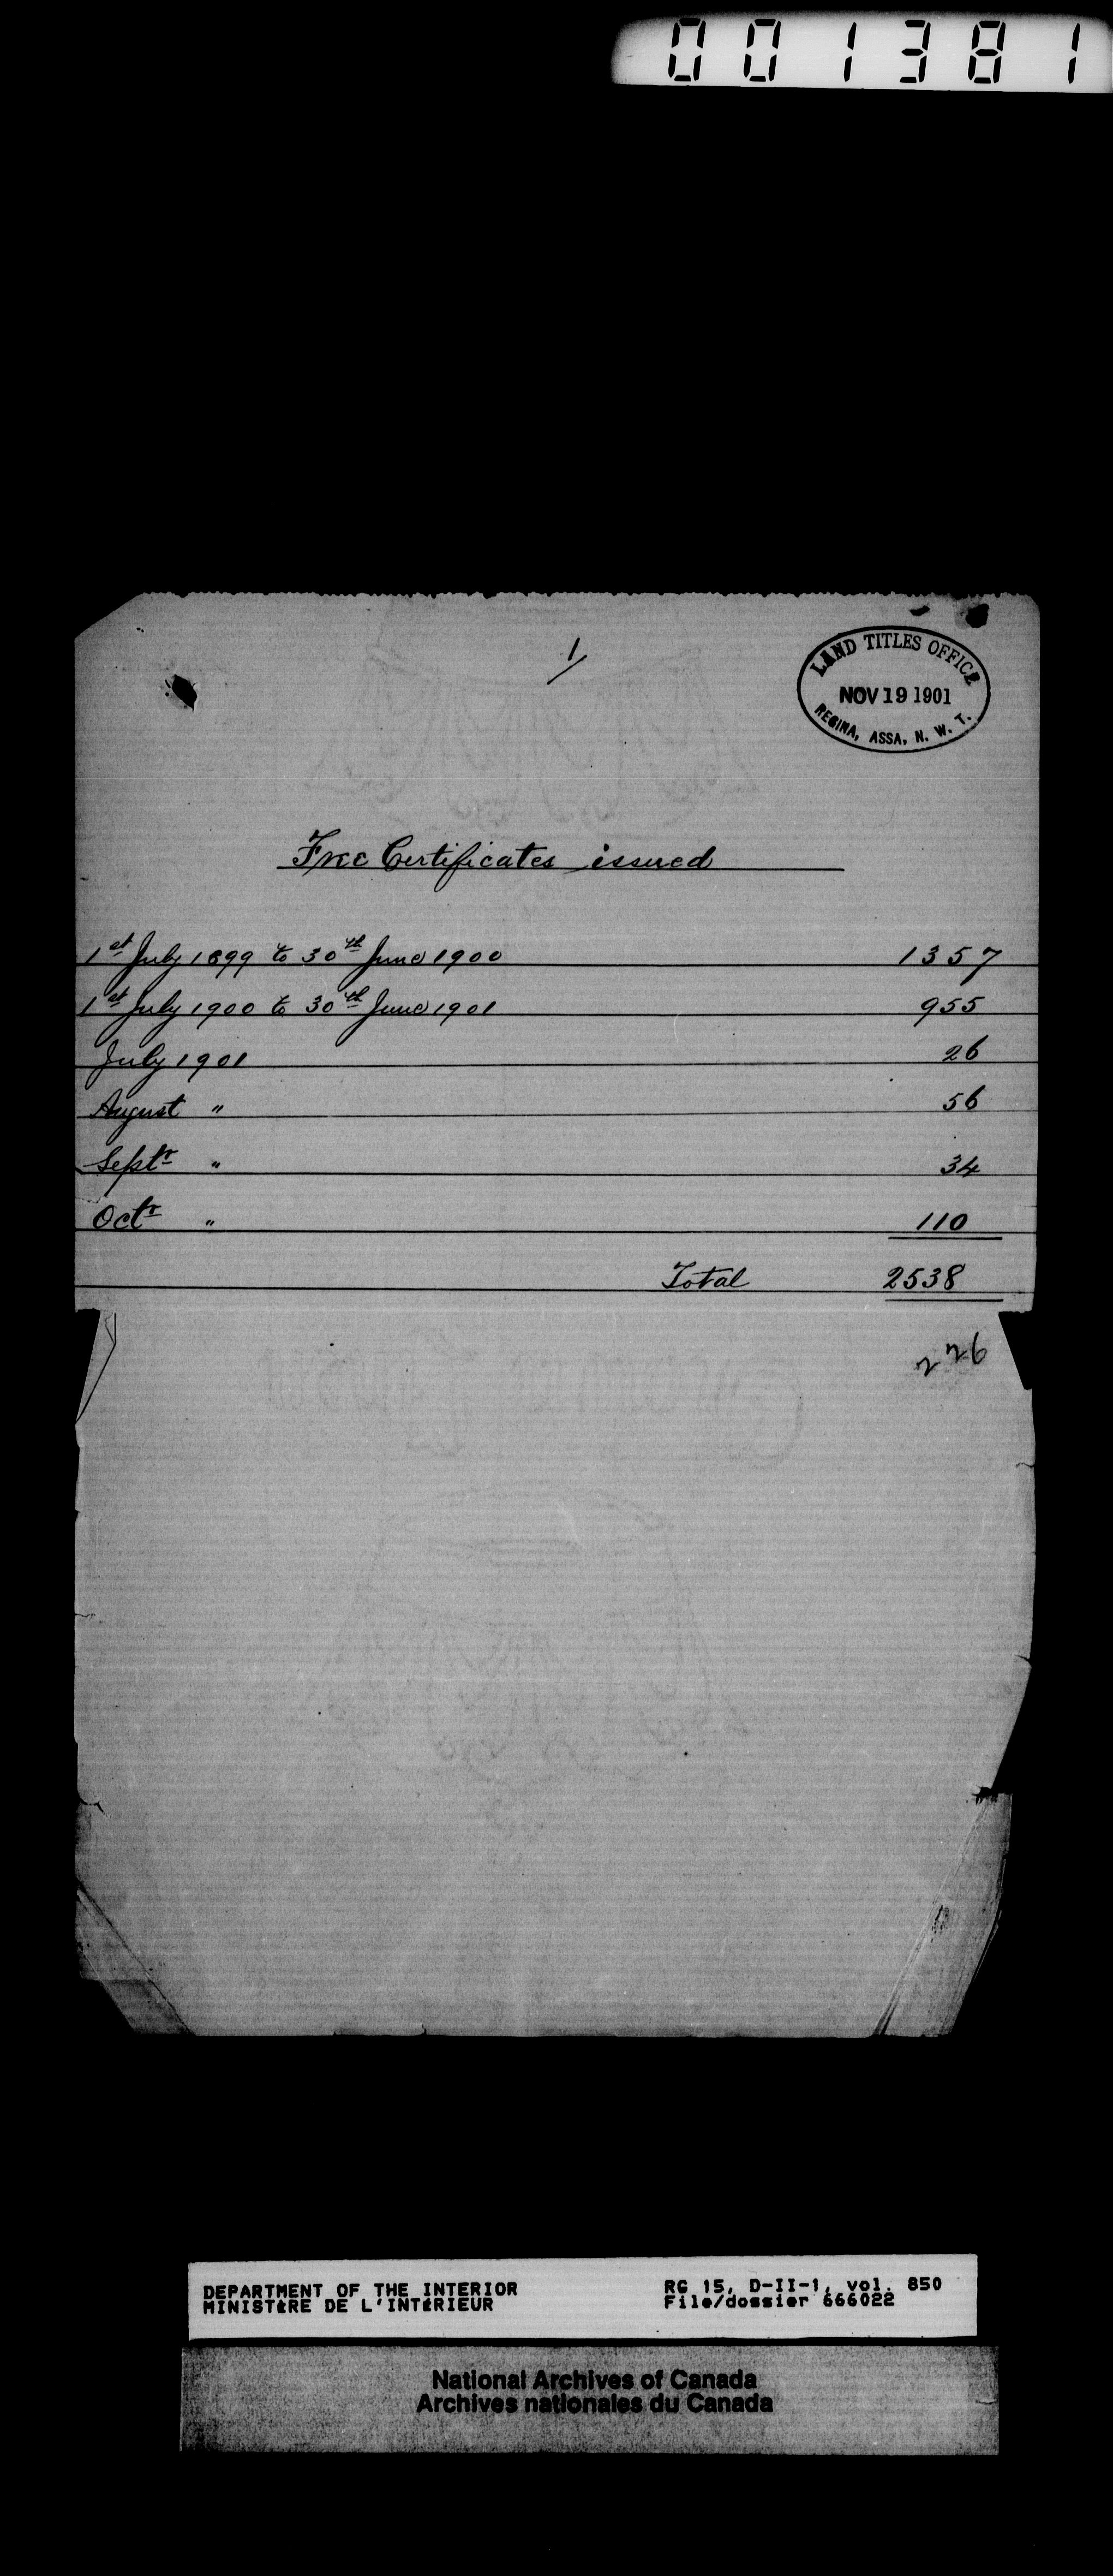 001381
1/
LAND TITLES OFFICE
NOV 19 1901
REGINA, ASSA, N. W. T.
Free Certificates issued
1st July 1899 to 30th June 1900 1357
1st July 1900 to 30th June 1901 955
July 1901 26
August " 56
Septr " 34
Octr " 110
Total 2538
226
DEPARTMENT OF THE INTERIOR RG 15, D-II-1, vol. 850
MINISTÈRE DE L'INTÉRIEUR File/dossier 666022
National Archives of Canada
Archives nationales du Canada